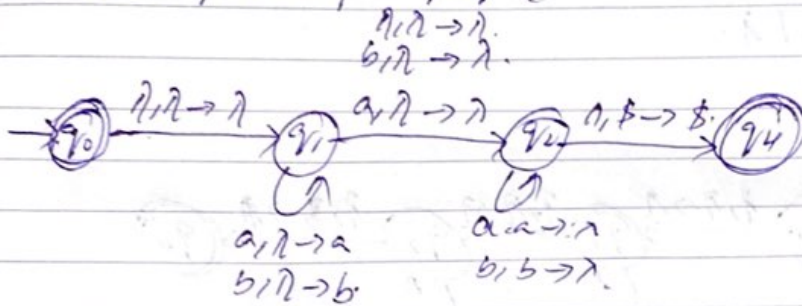 λ,λ→λ.
b,λ→λ.
q0 λ,λ→λ q1 a,λ→λ q2 λ,$→$. q4
a,λ→a a.a→.λ
b,λ→b. b,b→λ.